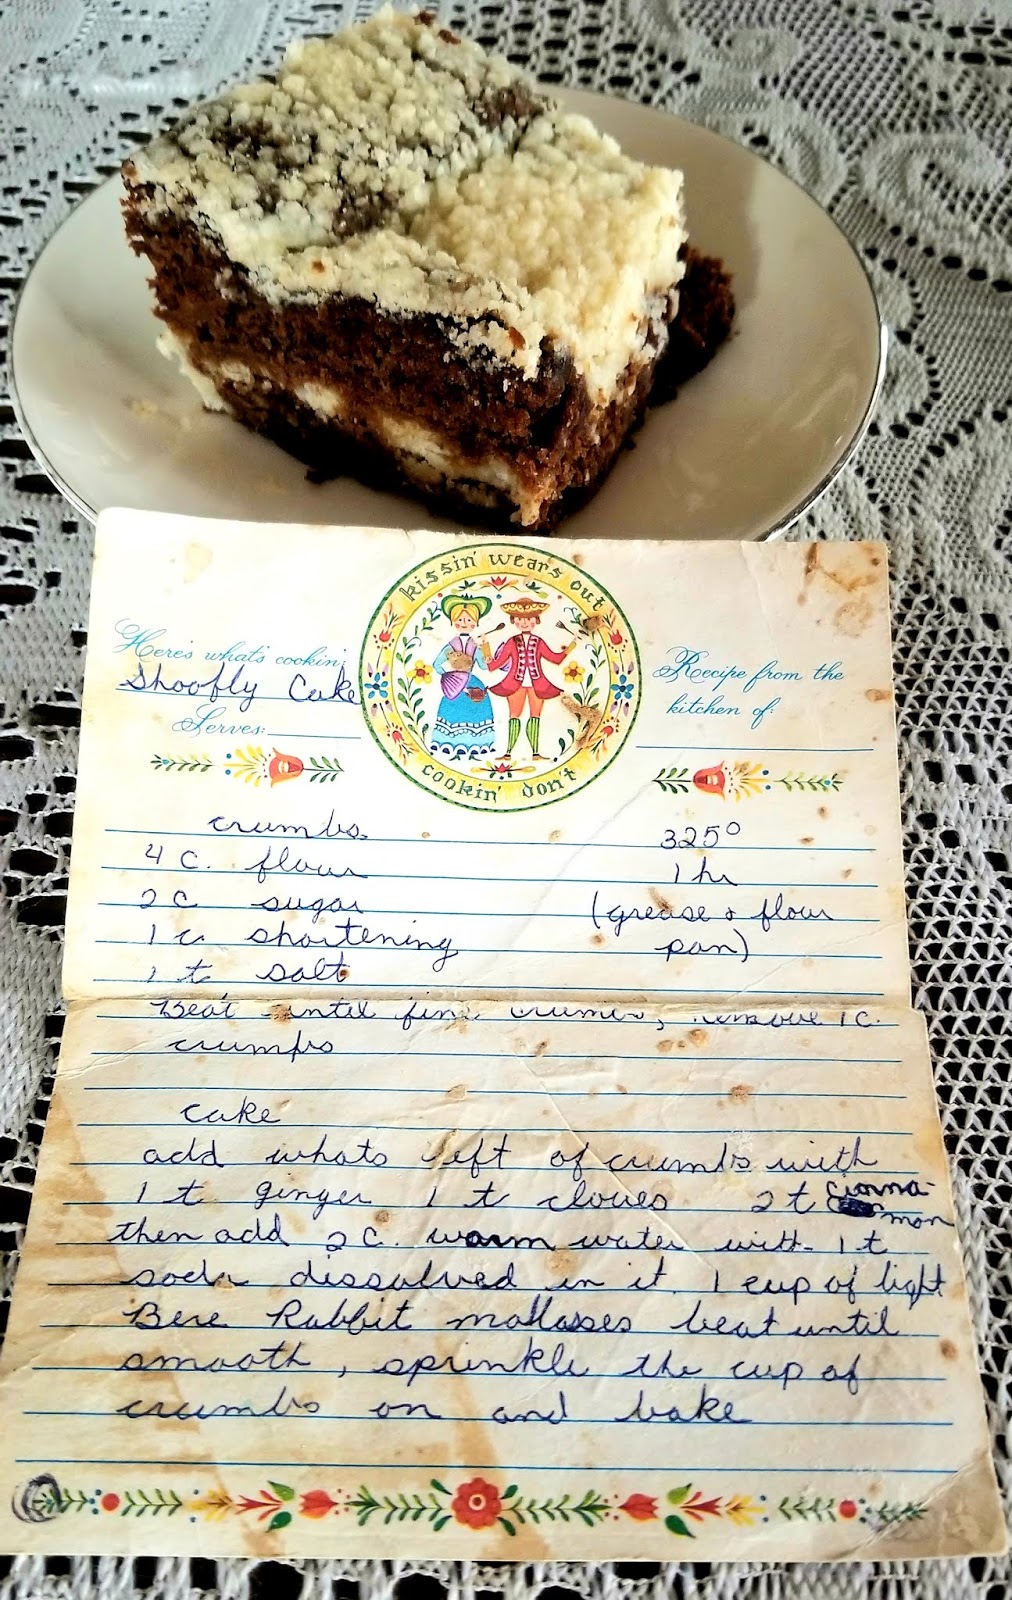 kissin' wears out
Here's what's cookin':
Shoofly Cake
Serves:
cookin' don't
Recipe from the
kitchen of:
crumbs
4 c. flour
2 c sugar
1 c. shortening
1 t salt
325°
1 hr
(grease & flour
pan)
Beat until fine crumbs, remove 1 c.
crumbs
cake
add whats left of crumbs with
1 t ginger 1 t cloves 2 t cinna-
mon
then add 2 c. warm water with 1 t
soda dissolved in it. 1 cup of light
Bere Rabbit mollasses beat until
smooth, sprinkle the cup of
crumbs on and bake